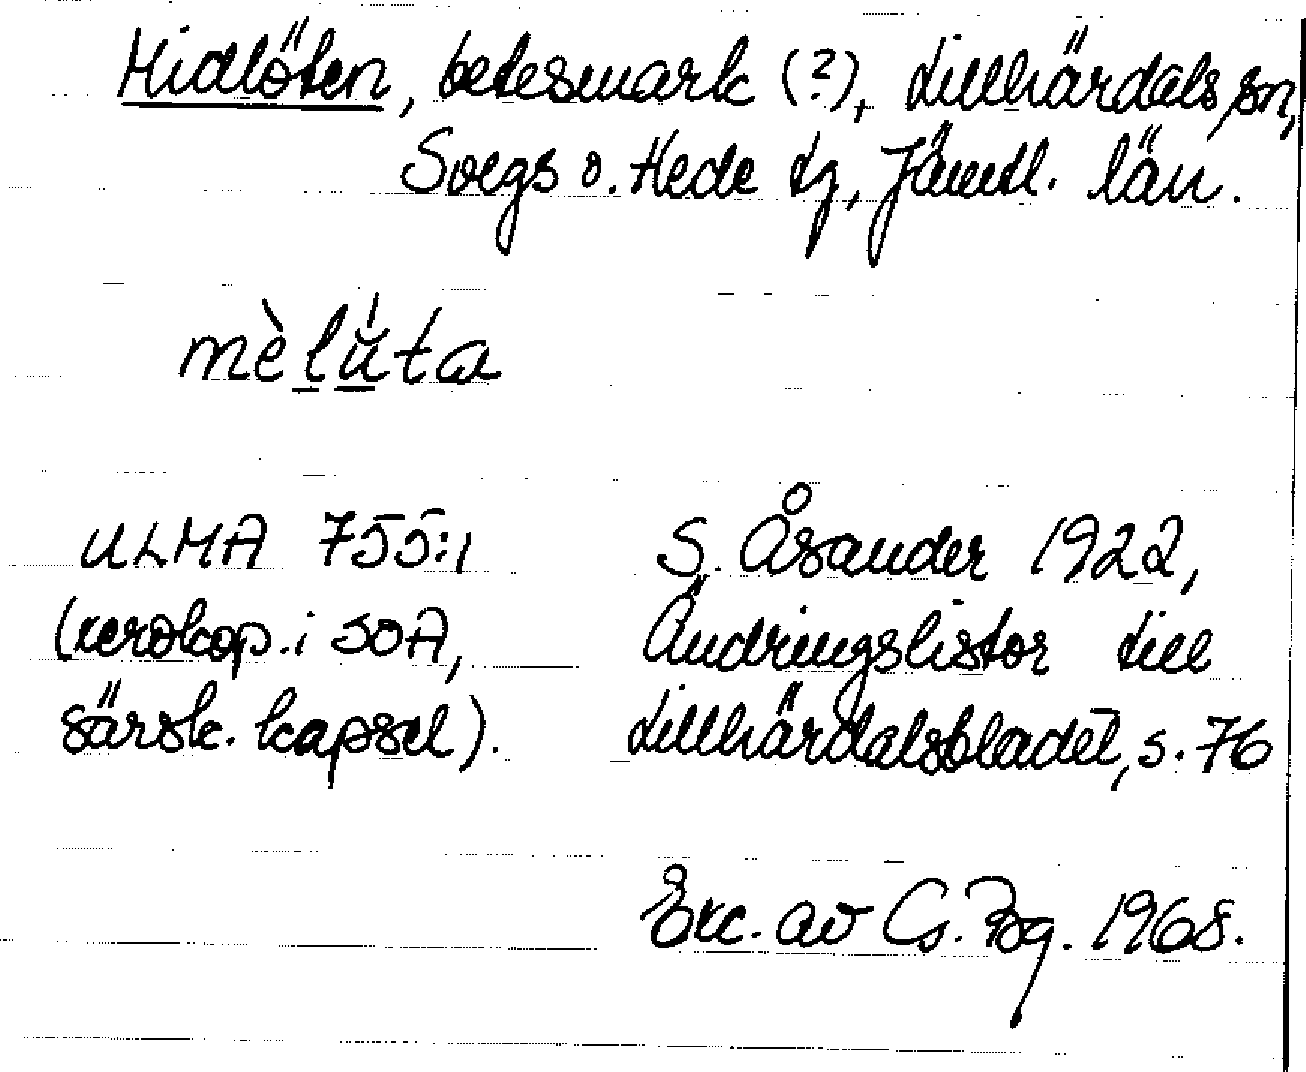 Midlöten, betesmark (?), Lillhärdals sn,
Svegs o. Hede tg, Jämtl. län.
mèlúta
ULMA 755:1
(xerokop. i SOA,
särsk. kapsel).
S. Åsander 1922,
Ändringslistor till
Lillhärdalsbladet, s. 76
Exc. av G. Bg. 1968.